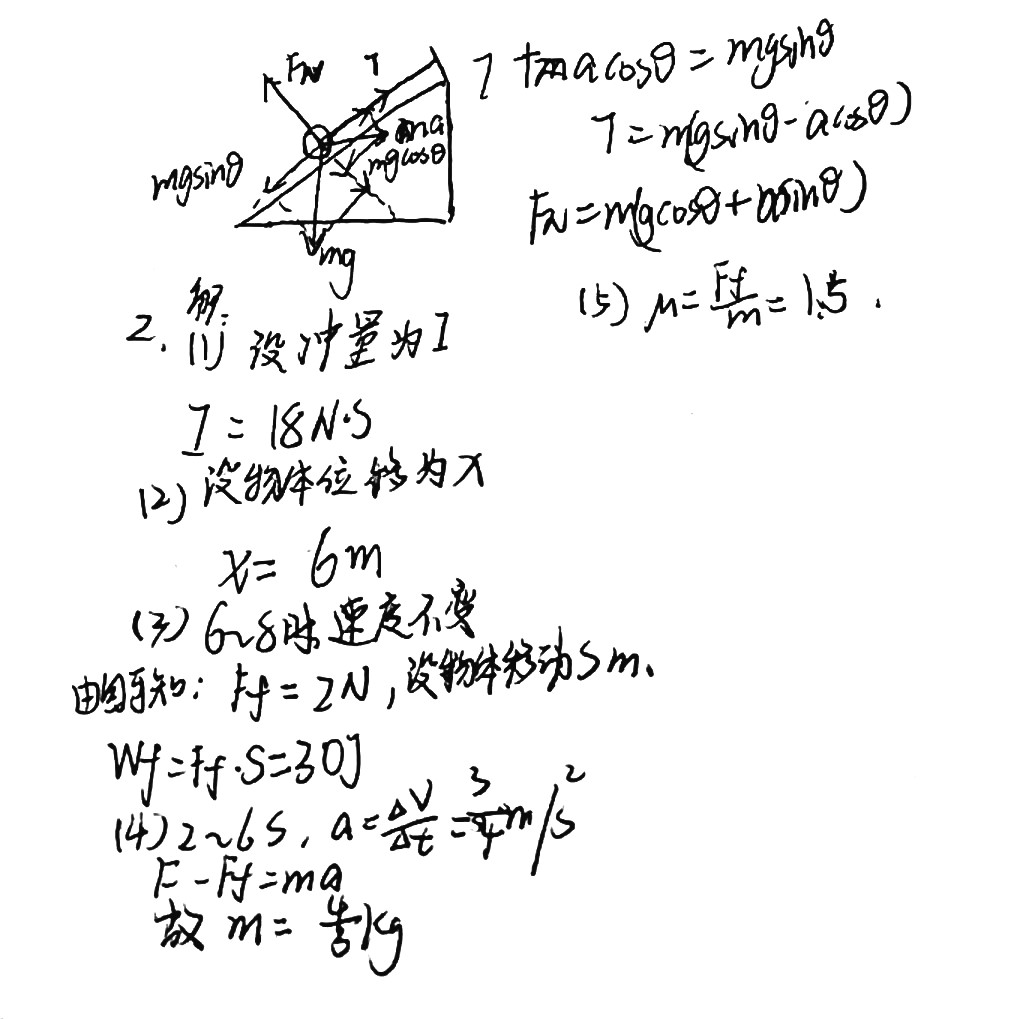 FN T ma
mgcosθ
mgsinθ
mg
T + macosθ = mgsinθ
T = m(gsinθ - acosθ)
FN = m(gcosθ + asinθ)
2. 解:
(1) 设冲量为I
I = 18N·S
(2) 设物体位移为x
x = 6m
(3) 6~8时速度不变
由图可知: Ff = 2N, 设物体移动S m.
Wf = Ff·S = 30J
(4) 2~6S, a = ΔV/Δt = 3/4 m/s²
F - Ff = ma
故 m = 4/3 kg
(5) μ = Ff/m = 1.5.